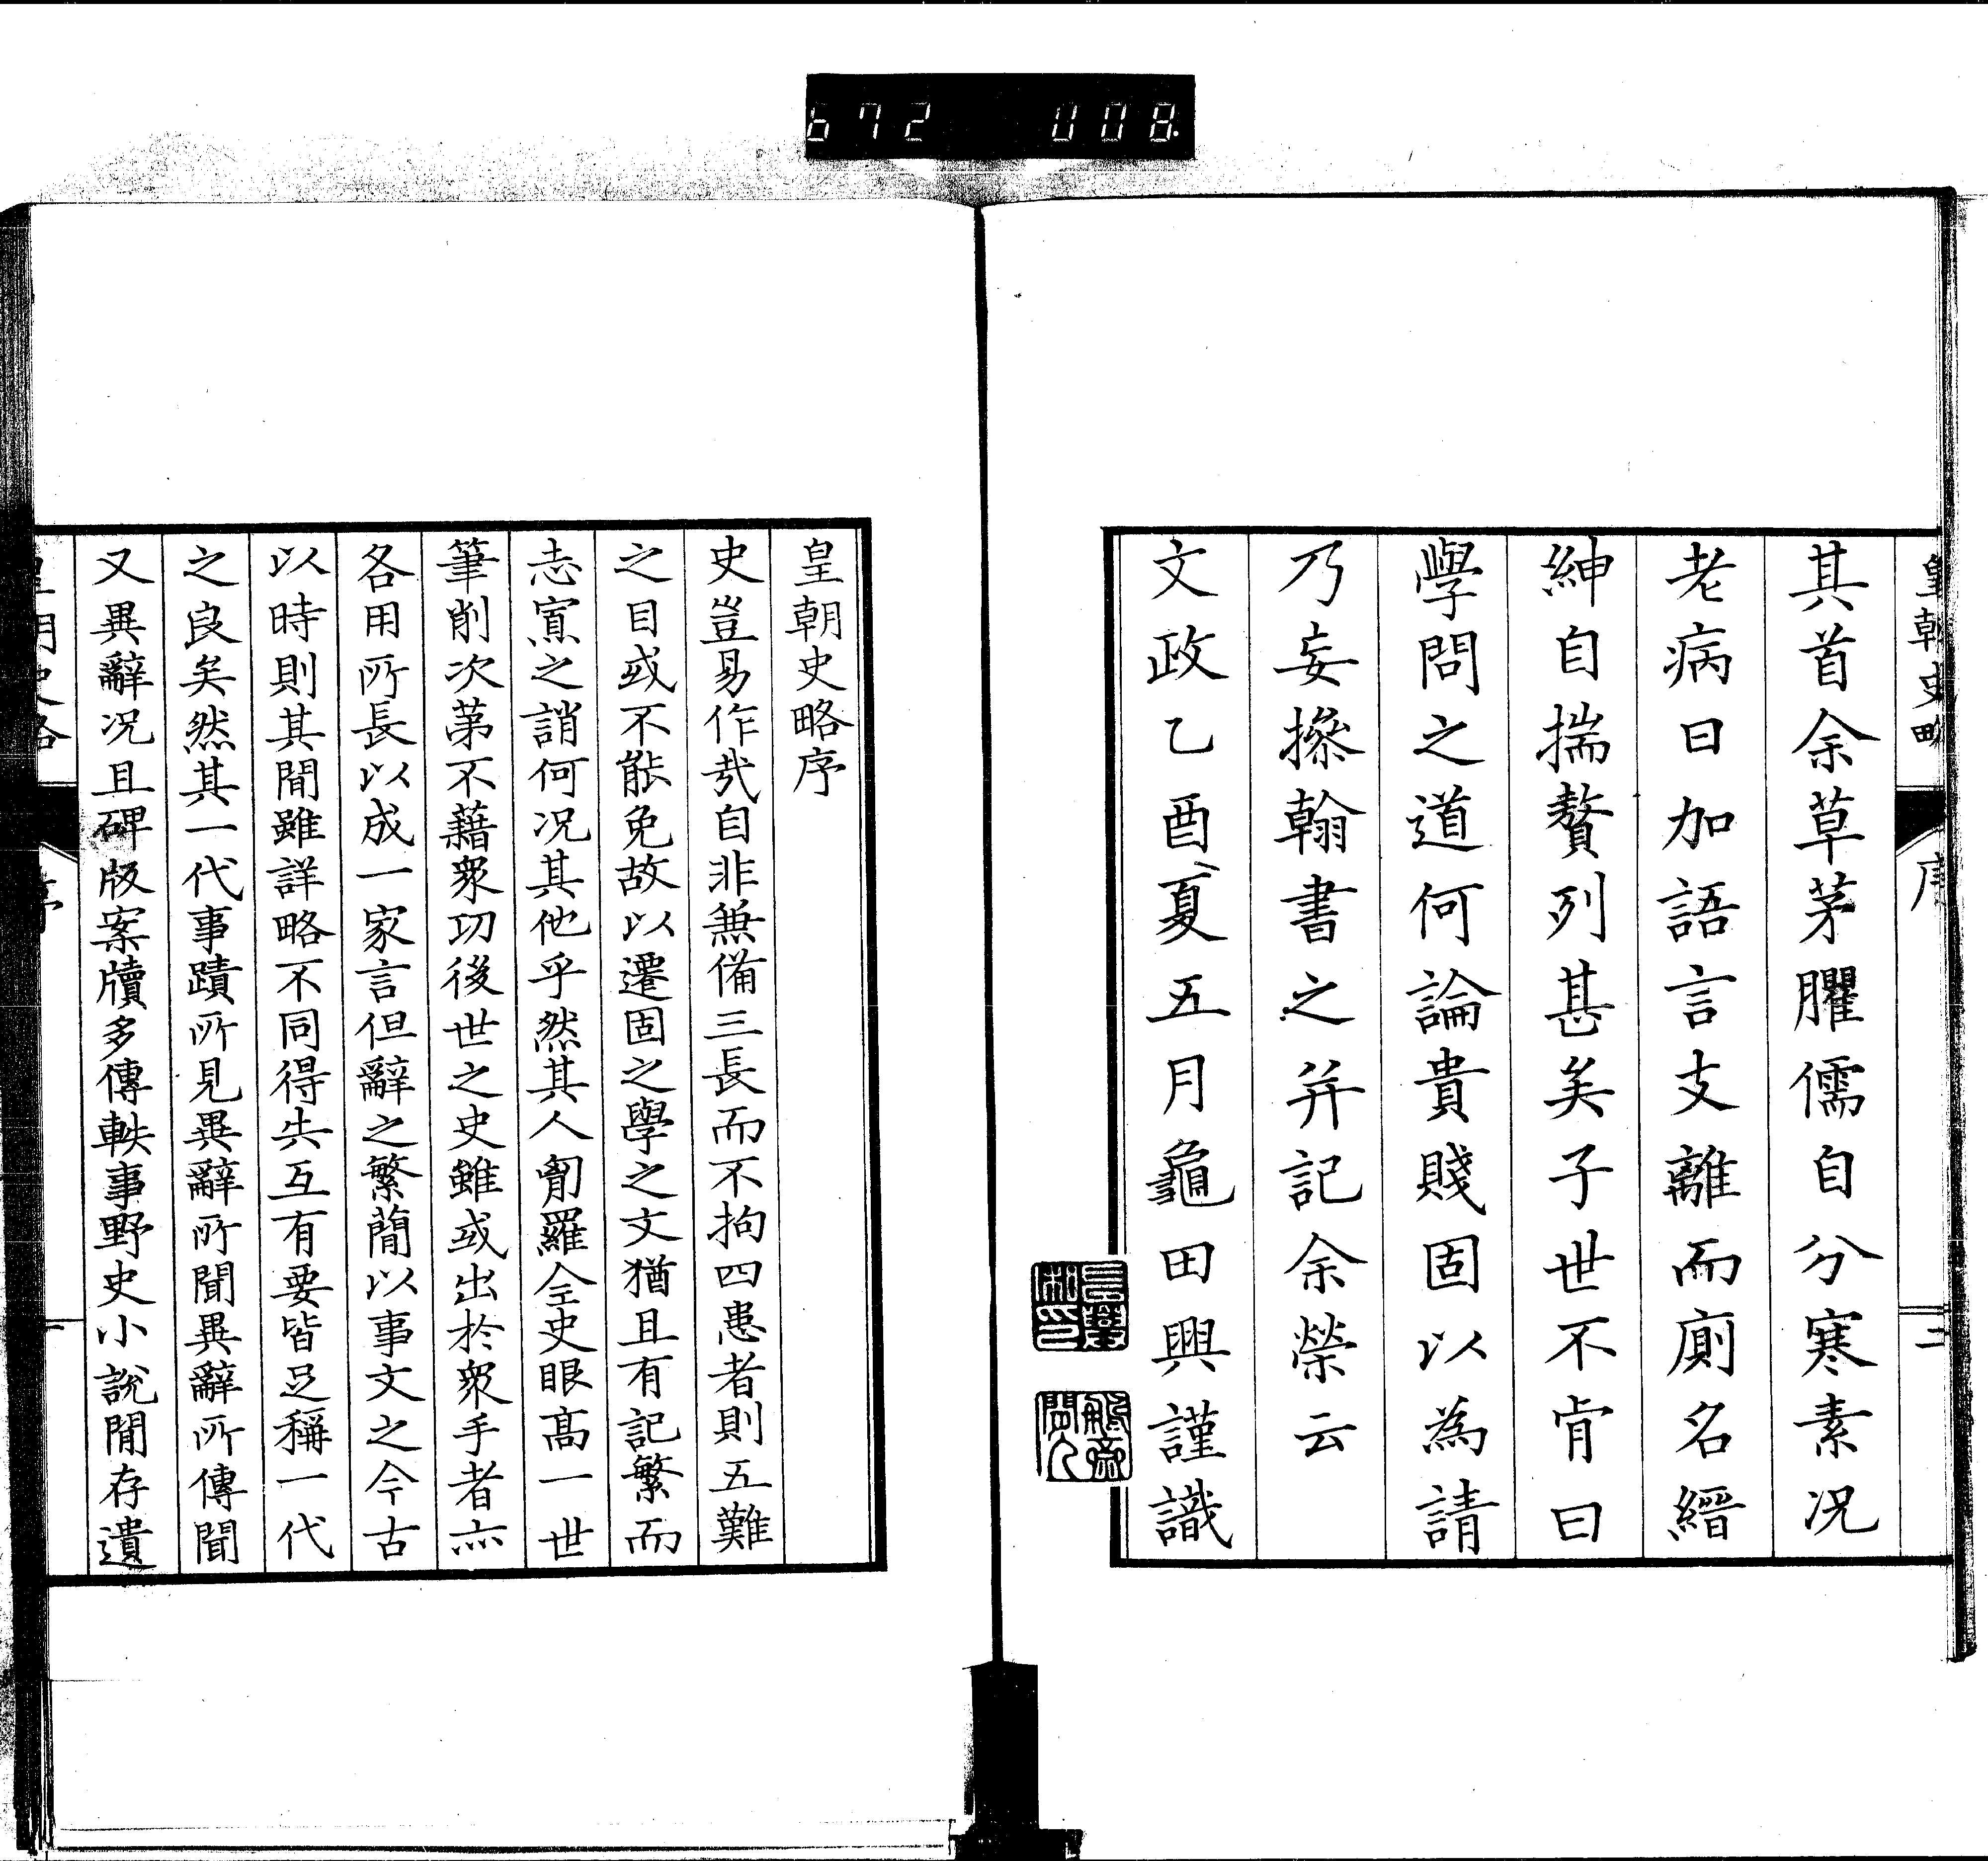 672 008.
皇朝史略
序
二
其首余草茅臞儒自分寒素况
老病日加語言支離而廁名縉
紳自揣贅列甚矣子世不肯曰
學問之道何論貴賤固以為請
乃妄摻翰書之并記余榮云
文政乙酉夏五月龜田興謹識
皇朝史略序
史豈易作㢤自非兼備三長而不拘四患者則五難
之目或不能免故以遷固之學之文猶且有記繁而
志寡之誚何况其他乎然其人胷羅全史眼高一世
筆削次第不藉衆功後世之史雖或出於衆手者亦
各用所長以成一家言但辭之繁簡以事文之今古
以時則其間雖詳略不同得失互有要皆足稱一代
之良矣然其一代事蹟所見異辭所聞異辭所傳聞
又異辭况且碑版案牘多傳軼事野史小說間存遺
皇朝史略
序
一